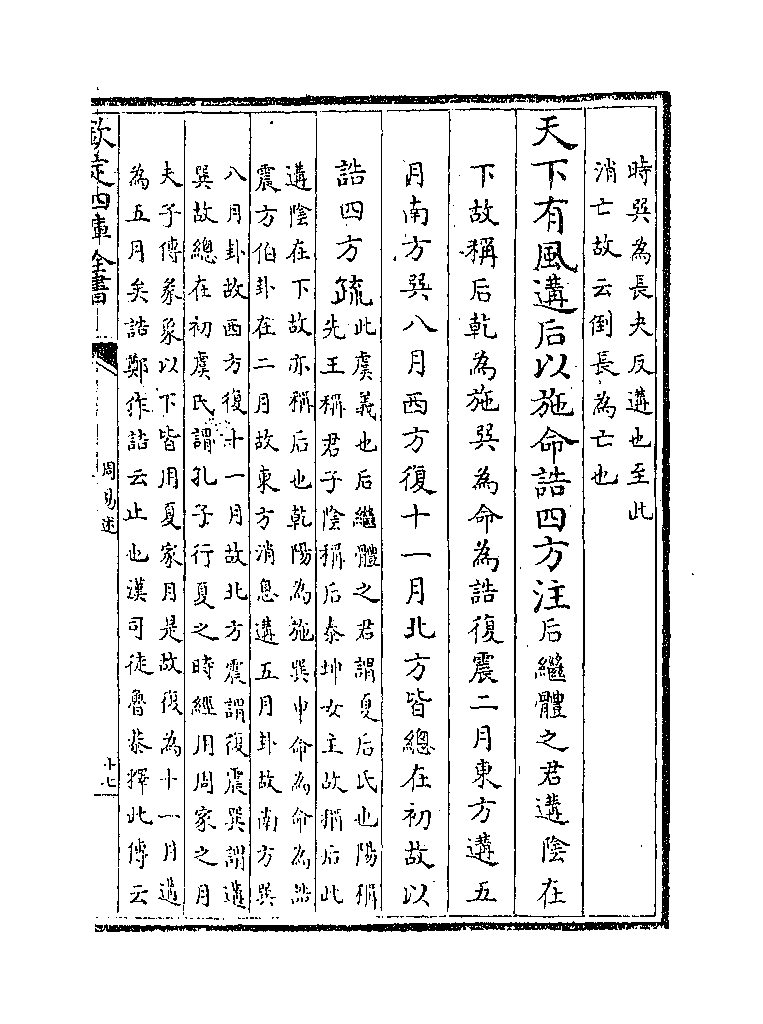 時巽為長夬反遘也至此
消亡故云倒長為亡也
天下有風遘后以施命誥四方注后繼體之君遘陰在
下故稱后乾為施巽為命為誥復震二月東方遘五
月南方巽八月西方復十一月北方皆總在初故以
誥四方疏此虞義也后繼體之君謂夏后氏也陽稱
先王稱君子陰稱后泰坤女主故稱后此
遘陰在下故亦稱后也乾陽為施巽申命為命為誥
震方伯卦在二月故東方消息遘五月卦故南方巽
八月卦故西方復十一月故北方震謂復震巽謂遘
巽故總在初虞氏謂孔子行夏之時經用周家之月
夫子傳彖象以下皆用夏家月是故復為十一月遘
為五月矣誥鄭作詰云止也漢司徒魯恭擇此傳云
欽定四庫全書
周易述
十七